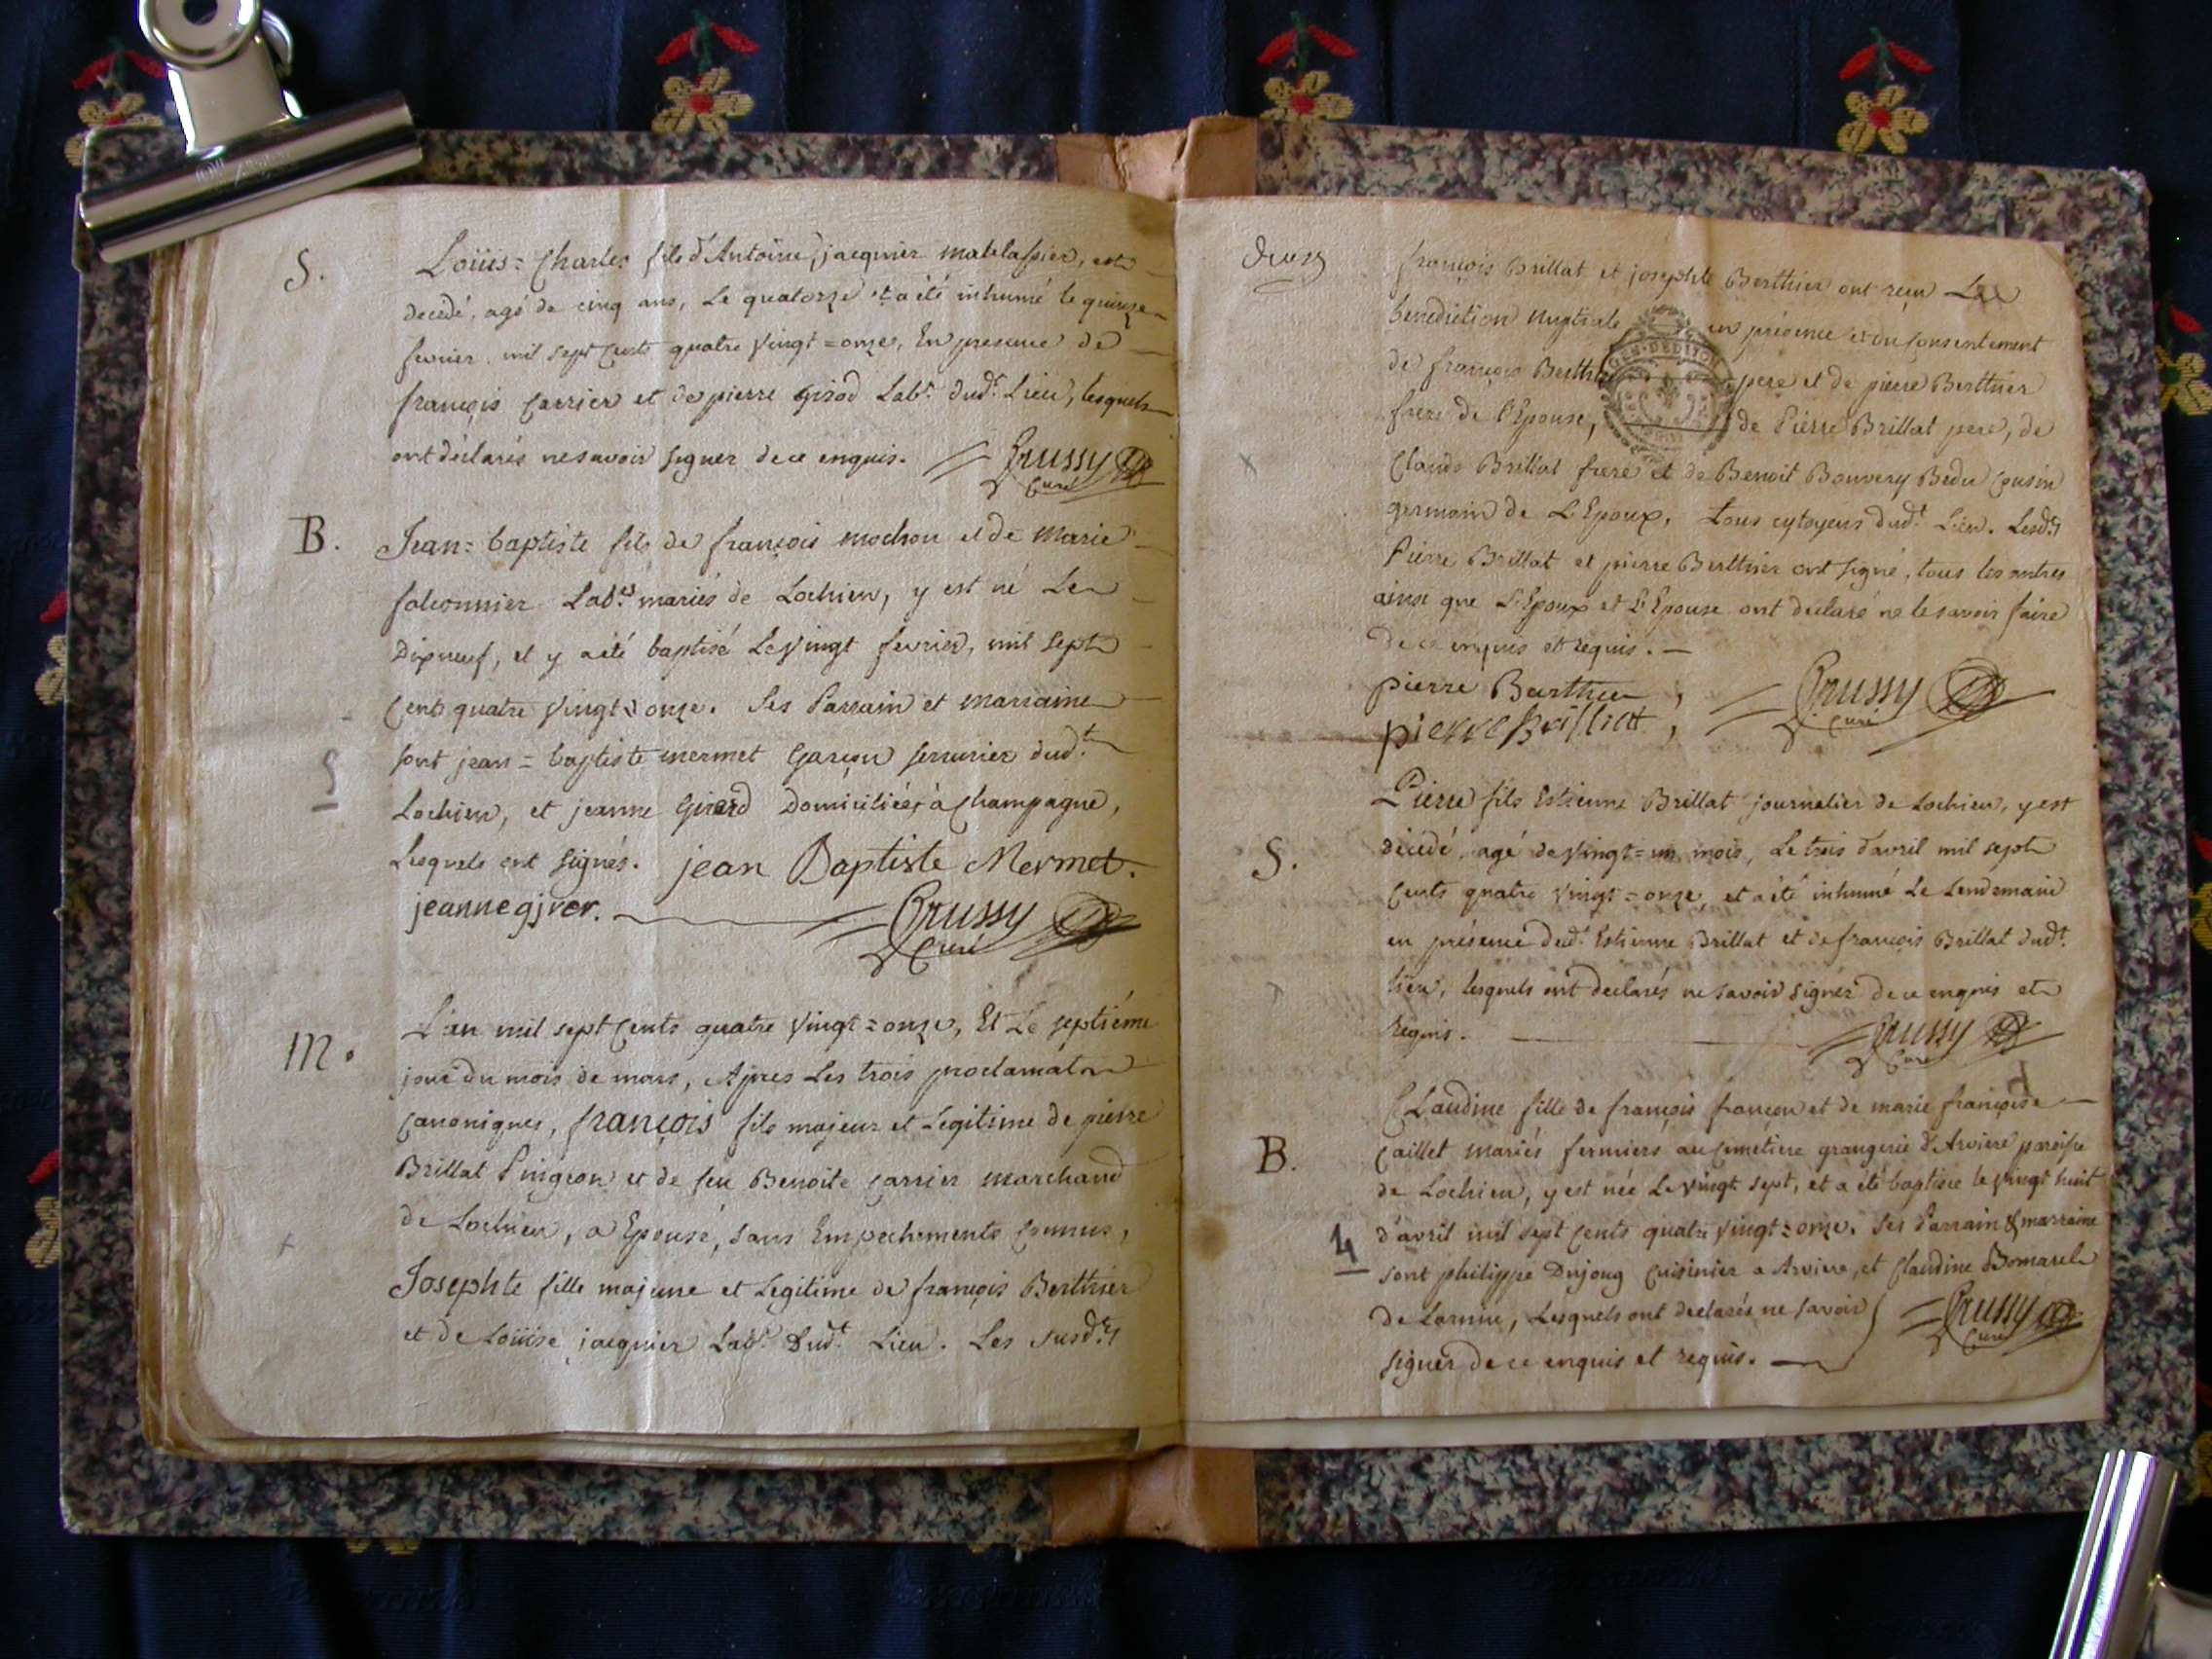 S.
Loüis = Charles fils d'Antoine jacquier matelassier, est
decedé, agé de cinq ans, Le quatorze et a été inhumé le quinze
fevrier mil sept Cents quatre Vingt = onze, En presence de
françois Carrier et de pierre girod Labr. dudt. Lieu, lesquels
ont déclarés ne savoir signer de ce enquis. Crussy
Curé
B.
Jean = baptiste fils de françois mochon et de Marie
falconnier Labrs mariés de Lochieu, y est né Le
Dixneuf, et y a été baptisé Le Vingt fevrier, mil sept
Cents quatre Vingt = onze. Ses Parrain et marraine
sont jean = baptiste mermet Garçon serrurier dudt.
Lochieu, et jeanne Girerd Domiciliée à Champagne,
Lesquels ont signés. jean Baptiste Mermet.
jeanne gjrer. Crussy
Curé
M.
L'an mil sept Cents quatre Vingt = onze, Et Le septiéme
jour du mois de mars, Apres Les trois proclamaton
Canoniques, françois fils majeur et Legitime de pierre
Brillat Pingeon et de feu Benoite Carrier marchand
de Lochieu, a Epousé, sans Empechements Connus,
Josephte fille majeure et Legitime de françois Berthier
et de Loüise jacquier Labr. Dudt. Lieu. Les susdts
françois Brillat et josephte Berthier ont reçu La
benediction Nuptiale en présence et du Consentement
de françois Berthier pere et de pierre Berthier
frere de l'Epouse, de Pierre Brillat pere, de
Claude Brillat frere et de Benoit Bouvery Bedu Cousin
germain de L'Epoux, tous cytoyens dudt. Lieu. Lesdts
Pierre Brillat et pierre Berthier ont signé, tous les autres
ainsi que L'Epoux et L'Epouse ont declaré ne le savoir faire
de ce enquis et requis.
pierre Barthier,
pierre Brilliat, Crussy
Curé
S.
Pierre fils Estienne Brillat journalier de Lochieu, y est
décédé, agé de Vingt = un mois, Le trois d'avril mil sept
Cents quatre Vingt = onze, et a été inhumé Le Lendemain
en présence dudt. Estienne Brillat et de françois Brillat dudt.
lieu, lesquels ont declarés ne savoir signer de ce enquis et
requis. Crussy
Curé
B.
Claudine fille de françois françon et de marie françoise
Caillet mariés fermiers au Cimetiere grangerie d'Arviere paroisse
de Lochieu, y est née Le Vingt sept, et a été baptisée le Vingt huit
4
d'avril mil sept Cents quatre Vingt = onze. Ses Parrain & marraine
sont philippe Dujoug Cuisinier a Arviere, et Claudine
de, Lesquels ont declarés ne savoir Crussy
Curé
signer de ce enquis et requis.